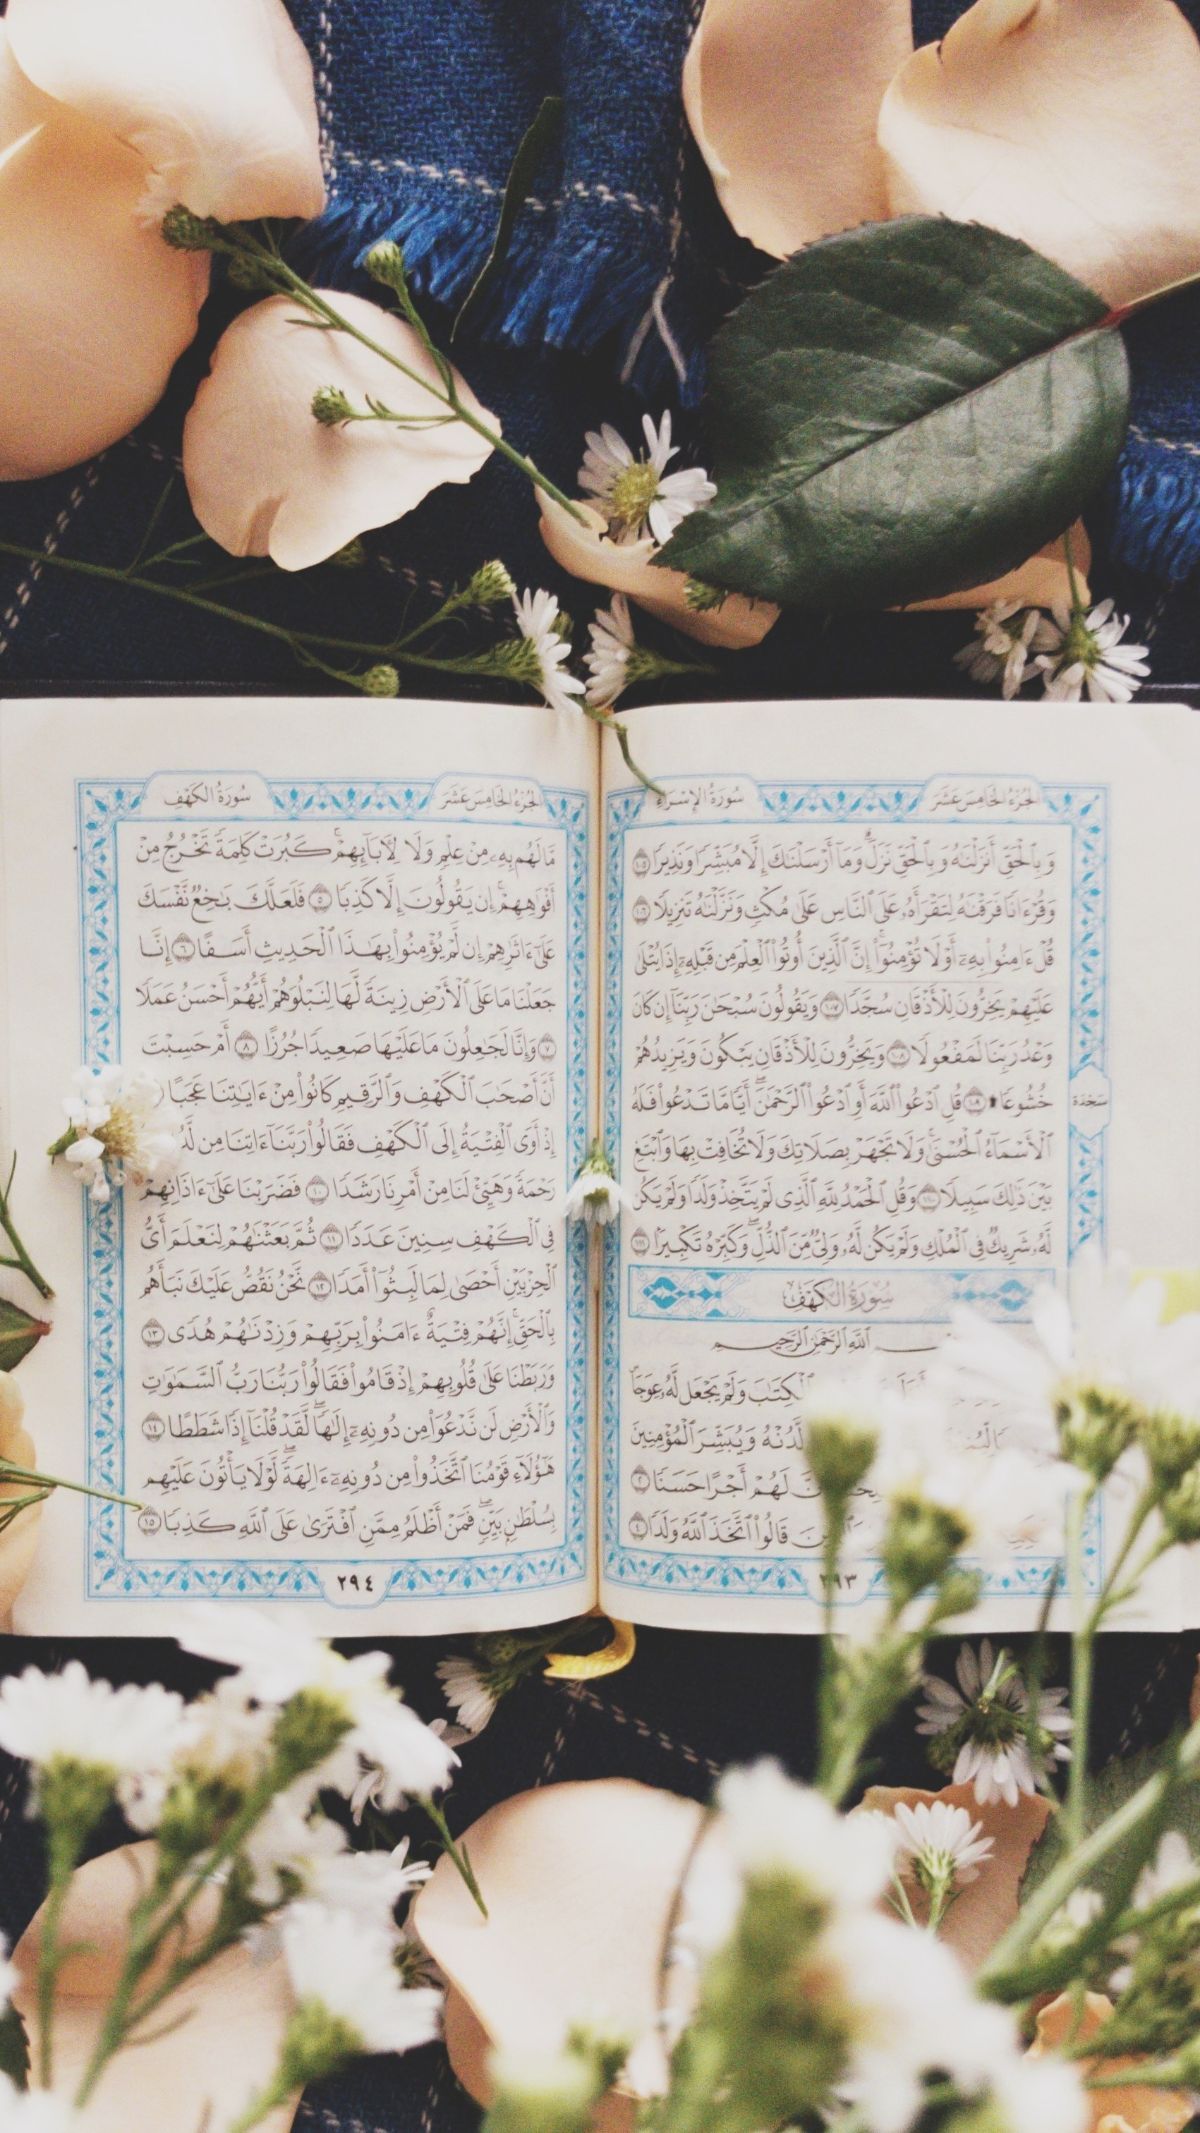 الجزء الخامس عشر
سورة الإسراء
وَبِٱلْحَقِّ أَنزَلْنَٰهُ وَبِٱلْحَقِّ نَزَلَ ۗ وَمَآ أَرْسَلْنَٰكَ إِلَّا مُبَشِّرًا وَنَذِيرًا ١٠٥
وَقُرْءَانًا فَرَقْنَٰهُ لِتَقْرَأَهُۥ عَلَى ٱلنَّاسِ عَلَىٰ مُكْثٍ وَنَزَّلْنَٰهُ تَنزِيلًا ١٠٦
قُلْ ءَامِنُوا۟ بِهِۦٓ أَوْ لَا تُؤْمِنُوٓا۟ ۚ إِنَّ ٱلَّذِينَ أُوتُوا۟ ٱلْعِلْمَ مِن قَبْلِهِۦٓ إِذَا يُتْلَىٰ
عَلَيْهِمْ يَخِرُّونَ لِلْأَذْقَانِ سُجَّدًا ١٠٧ وَيَقُولُونَ سُبْحَٰنَ رَبِّنَآ إِن كَانَ
وَعْدُ رَبِّنَا لَمَفْعُولًا ١٠٨ وَيَخِرُّونَ لِلْأَذْقَانِ يَبْكُونَ وَيَزِيدُهُمْ
خُشُوعًا ۩ ١٠٩ قُلِ ٱدْعُوا۟ ٱللَّهَ أَوِ ٱدْعُوا۟ ٱلرَّحْمَٰنَ ۖ أَيًّا مَّا تَدْعُوا۟ فَلَهُ
سَجْدَة
ٱلْأَسْمَآءُ ٱلْحُسْنَىٰ ۚ وَلَا تَجْهَرْ بِصَلَاتِكَ وَلَا تُخَافِتْ بِهَا وَٱبْتَغِ
بَيْنَ ذَٰلِكَ سَبِيلًا ١١٠ وَقُلِ ٱلْحَمْدُ لِلَّهِ ٱلَّذِى لَمْ يَتَّخِذْ وَلَدًا وَلَمْ يَكُن
لَّهُۥ شَرِيكٌ فِى ٱلْمُلْكِ وَلَمْ يَكُن لَّهُۥ وَلِىٌّ مِّنَ ٱلذُّلِّ ۖ وَكَبِّرْهُ تَكْبِيرًۢا ١١١
سُورَةُ الكَهْفِ
ٱللَّهِ ٱلرَّحْمَٰنِ ٱلرَّحِيمِ
ٱلْكِتَٰبَ وَلَمْ يَجْعَل لَّهُۥ عِوَجَا
لَّدُنْهُ وَيُبَشِّرَ ٱلْمُؤْمِنِينَ
لَهُمْ أَجْرًا حَسَنًا ٢
قَالُوا۟ ٱتَّخَذَ ٱللَّهُ وَلَدًا ٤
٢٩٣
الجزء الخامس عشر
سورة الكهف
مَّا لَهُم بِهِۦ مِنْ عِلْمٍ وَلَا لِءَابَآئِهِمْ ۚ كَبُرَتْ كَلِمَةً تَخْرُجُ مِنْ
أَفْوَٰهِهِمْ ۚ إِن يَقُولُونَ إِلَّا كَذِبًا ٥ فَلَعَلَّكَ بَٰخِعٌ نَّفْسَكَ
عَلَىٰٓ ءَاثَٰرِهِمْ إِن لَّمْ يُؤْمِنُوا۟ بِهَٰذَا ٱلْحَدِيثِ أَسَفًا ٦ إِنَّا
جَعَلْنَا مَا عَلَى ٱلْأَرْضِ زِينَةً لَّهَا لِنَبْلُوَهُمْ أَيُّهُمْ أَحْسَنُ عَمَلًا
٧ وَإِنَّا لَجَٰعِلُونَ مَا عَلَيْهَا صَعِيدًا جُرُزًا ٨ أَمْ حَسِبْتَ
أَنَّ أَصْحَٰبَ ٱلْكَهْفِ وَٱلرَّقِيمِ كَانُوا۟ مِنْ ءَايَٰتِنَا عَجَبًا
إِذْ أَوَى ٱلْفِتْيَةُ إِلَى ٱلْكَهْفِ فَقَالُوا۟ رَبَّنَآ ءَاتِنَا مِن
رَحْمَةً وَهَيِّئْ لَنَا مِنْ أَمْرِنَا رَشَدًا ١٠ فَضَرَبْنَا عَلَىٰٓ ءَاذَانِهِمْ
فِى ٱلْكَهْفِ سِنِينَ عَدَدًا ١١ ثُمَّ بَعَثْنَٰهُمْ لِنَعْلَمَ أَىُّ
ٱلْحِزْبَيْنِ أَحْصَىٰ لِمَا لَبِثُوٓا۟ أَمَدًا ١٢ نَّحْنُ نَقُصُّ عَلَيْكَ نَبَأَهُم
بِٱلْحَقِّ ۚ إِنَّهُمْ فِتْيَةٌ ءَامَنُوا۟ بِرَبِّهِمْ وَزِدْنَٰهُمْ هُدًى ١٣
وَرَبَطْنَا عَلَىٰ قُلُوبِهِمْ إِذْ قَامُوا۟ فَقَالُوا۟ رَبُّنَا رَبُّ ٱلسَّمَٰوَٰتِ
وَٱلْأَرْضِ لَن نَّدْعُوَا۟ مِن دُونِهِۦٓ إِلَٰهًا ۖ لَّقَدْ قُلْنَآ إِذًا شَطَطًا ١٤
هَٰٓؤُلَآءِ قَوْمُنَا ٱتَّخَذُوا۟ مِن دُونِهِۦٓ ءَالِهَةً ۖ لَّوْلَا يَأْتُونَ عَلَيْهِم
بِسُلْطَٰنٍۭ بَيِّنٍ ۖ فَمَنْ أَظْلَمُ مِمَّنِ ٱفْتَرَىٰ عَلَى ٱللَّهِ كَذِبًا ١٥
٢٩٤